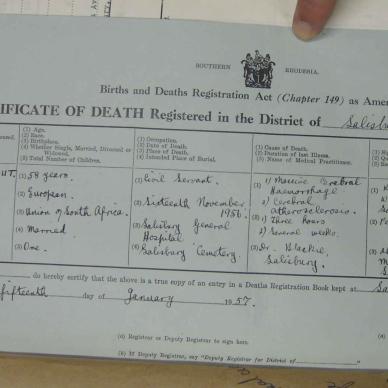 SOUTHERN RHODESIA.
Births and Deaths Registration Act (Chapter 149) as Amen
IFICATE OF DEATH Registered in the District of Salisbu
(1) Age.
(2) Race.
(3) Birthplace.
(4) Whether Single, Married, Divorced or Widowed.
(5) Total Number of Children.
(1) Occupation.
(2) Date of Death.
(3) Place of Death.
(4) Intended Place of Burial.
(1) Cause of Death.
(2) Duration of last Illness.
(3) Name of Medical Practitioner.
(1) 58 years.
(2) European
(3) Union of South Africa.
(4) Married
(5) One.
(1) Civil Servant.
(2) Sixteenth November 1956.
(3) Salisbury General Hospital
(4) Salisbury Cemetery.
(1) 1) Massive Cerebral Haemorrhage
2) Cerebral atherosclerosis.
(2) 1) Three hours
2) Several weeks.
(3) Dr. Blackie, Salisbury.
do hereby certify that the above is a true copy of an entry in a Deaths Registration Book kept at Sa
fifteenth day of January 1957.
(a) Registrar or Deputy Registrar to sign here.
(b) If Deputy Registrar, say "Deputy Registrar for District of